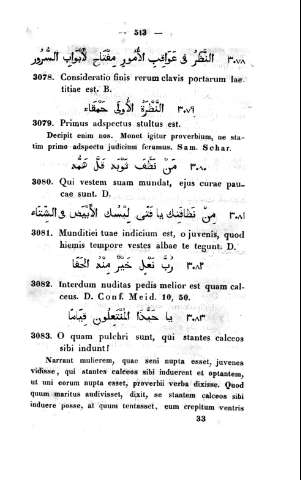 — 513 —
٣٠٧٨ النَّظَرُ فِى عَوَاقِبِ الأُمُورِ مِفْتَاحٌ لِأَبْوَابِ السُّرُورِ
3078. Consideratio finis rerum clavis portarum lae-
titiae est. B.
٣٠٧٩ النَّظْرَةُ الأُولَى حَمْقَاء
3079. Primus adspectus stultus est.
Decipit enim nos. Monet igitur proverbium, ne sta-
tim primo adspectu judicium feramus. Sam. Schar.
٣٠٨٠ مَنْ نَظَفَ ثَوْبَهُ قَلَّ هَمُّهُ
3080. Qui vestem suam mundat, ejus curae pau-
cae sunt. D.
٣٠٨١ مِنْ نَظَافَتِكَ يَا فَتَى لُبْسُكَ الأَبْيَضَ فِى الشِّتَاء
3081. Munditiei tuae indicium est, o juvenis, quod
hiemis tempore vestes albae te tegunt. D.
٣٠٨٢ رُبَّ نَعْلٍ خَيْرٌ مِنْهُ الحَفَا
3082. Interdum nuditas pedis melior est quam cal-
ceus. D. Conf. Meid. 10, 50.
٣٠٨٣ يا حَبَّذَا المُنْتَعِلُونَ قِيَامًا
3083. O quam pulchri sunt, qui stantes calceos
sibi indunt!
Narrant mulierem, quae seni nupta esset, juvenes
vidisse, qui stantes calceos sibi induerent et optantem,
ut uni eorum nupta esset, proverbii verba dixisse. Quod
quum maritus audivisset, dixit, se stantem calceos sibi
induere posse, at quum tentasset, eum crepitum ventris
33